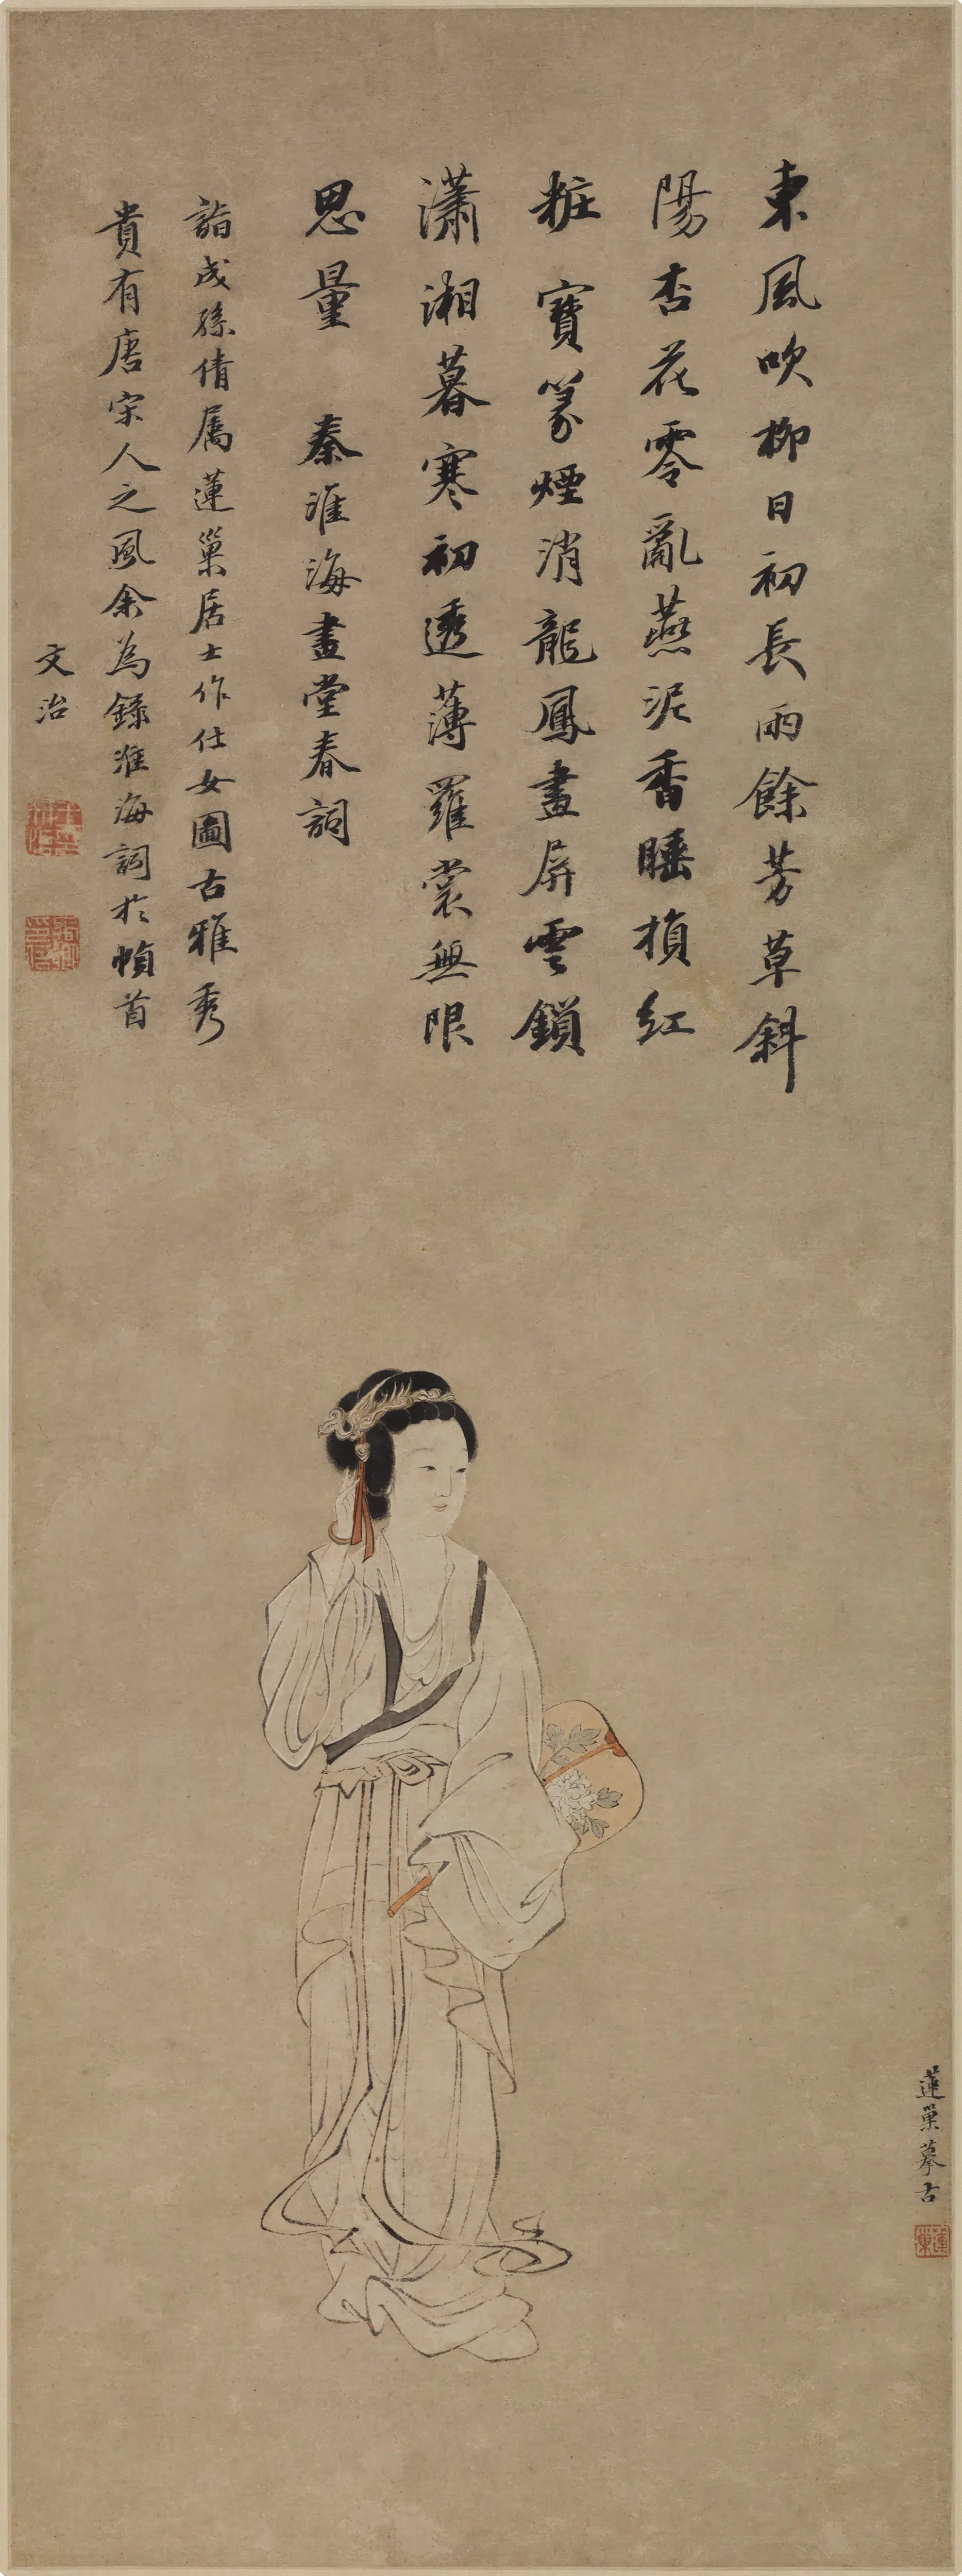 東風吹柳日初長雨餘芳草斜
陽杏花零亂燕泥香睡損紅
粧寶篆煙消龍鳳畫屏雲鎖
瀟湘暮寒初透薄羅裳無限
思量 秦淮海畫堂春詞
詣成孫倩屬蓮巢居士作仕女圖古雅秀
貴有唐宋人之風余為錄淮海詞於幀首
文治
蓮巢摹古
蓮巢